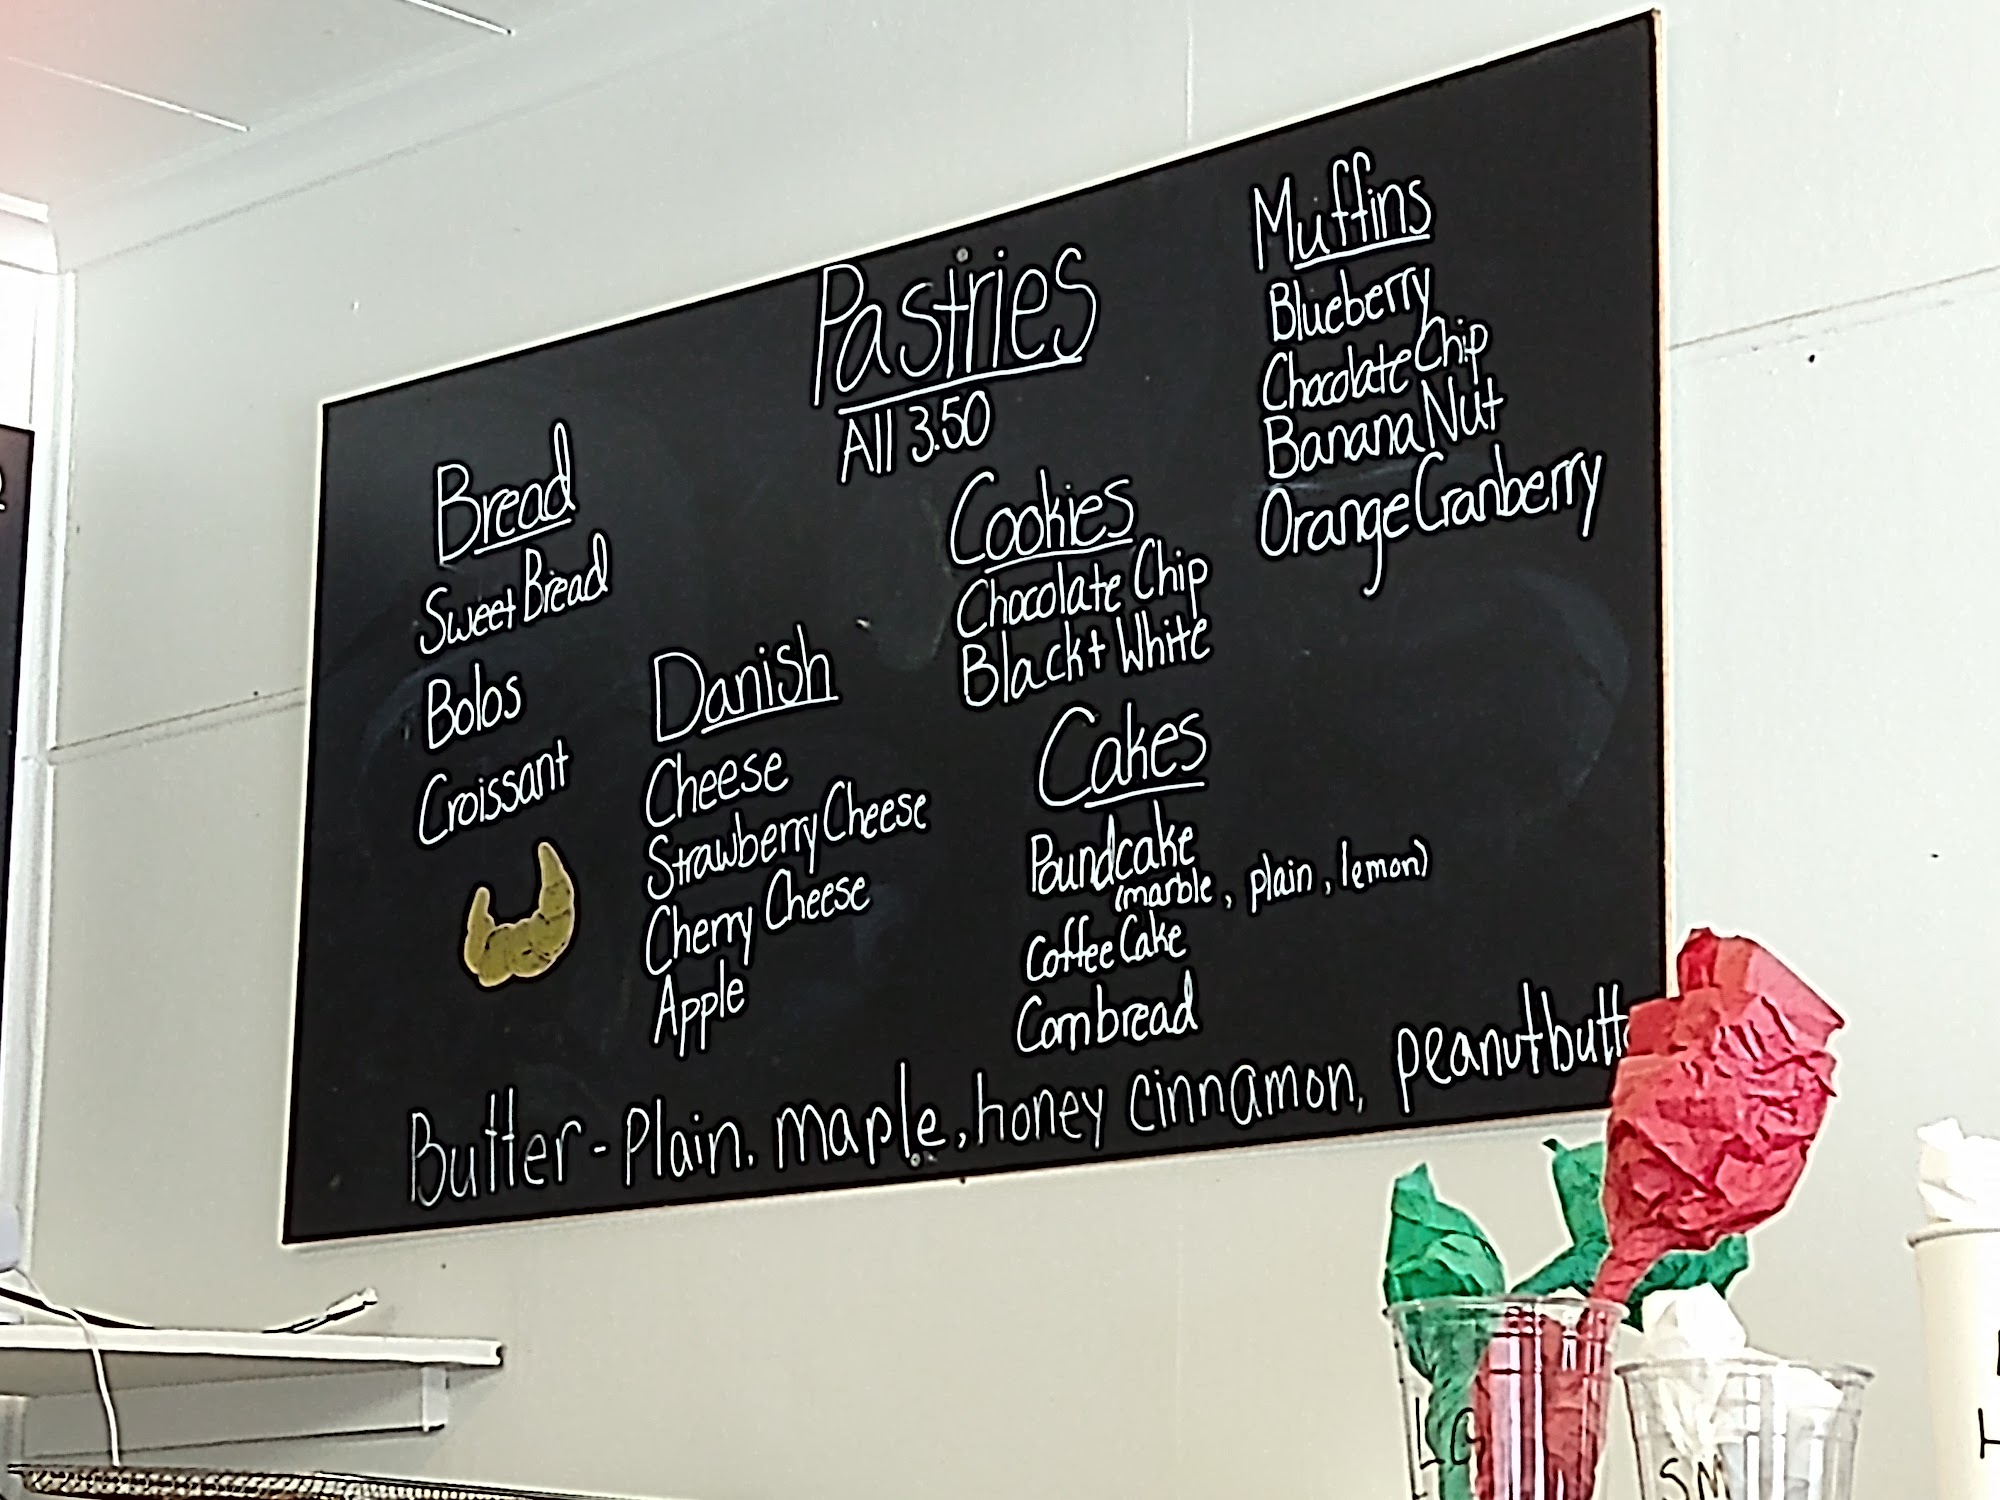 Pastries
All 3.50
Bread
Sweet Bread
Bolos
Croissant
Danish
Cheese
Strawberry Cheese
Cherry Cheese
Apple
Cookies
Chocolate Chip
Black + White
Cakes
Poundcake
(marble, plain, lemon)
Coffee Cake
Cornbread
Muffins
Blueberry
Chocolate Chip
Banana Nut
Orange Cranberry
Butter - Plain, maple, honey cinnamon, peanutbutt
LG
SM